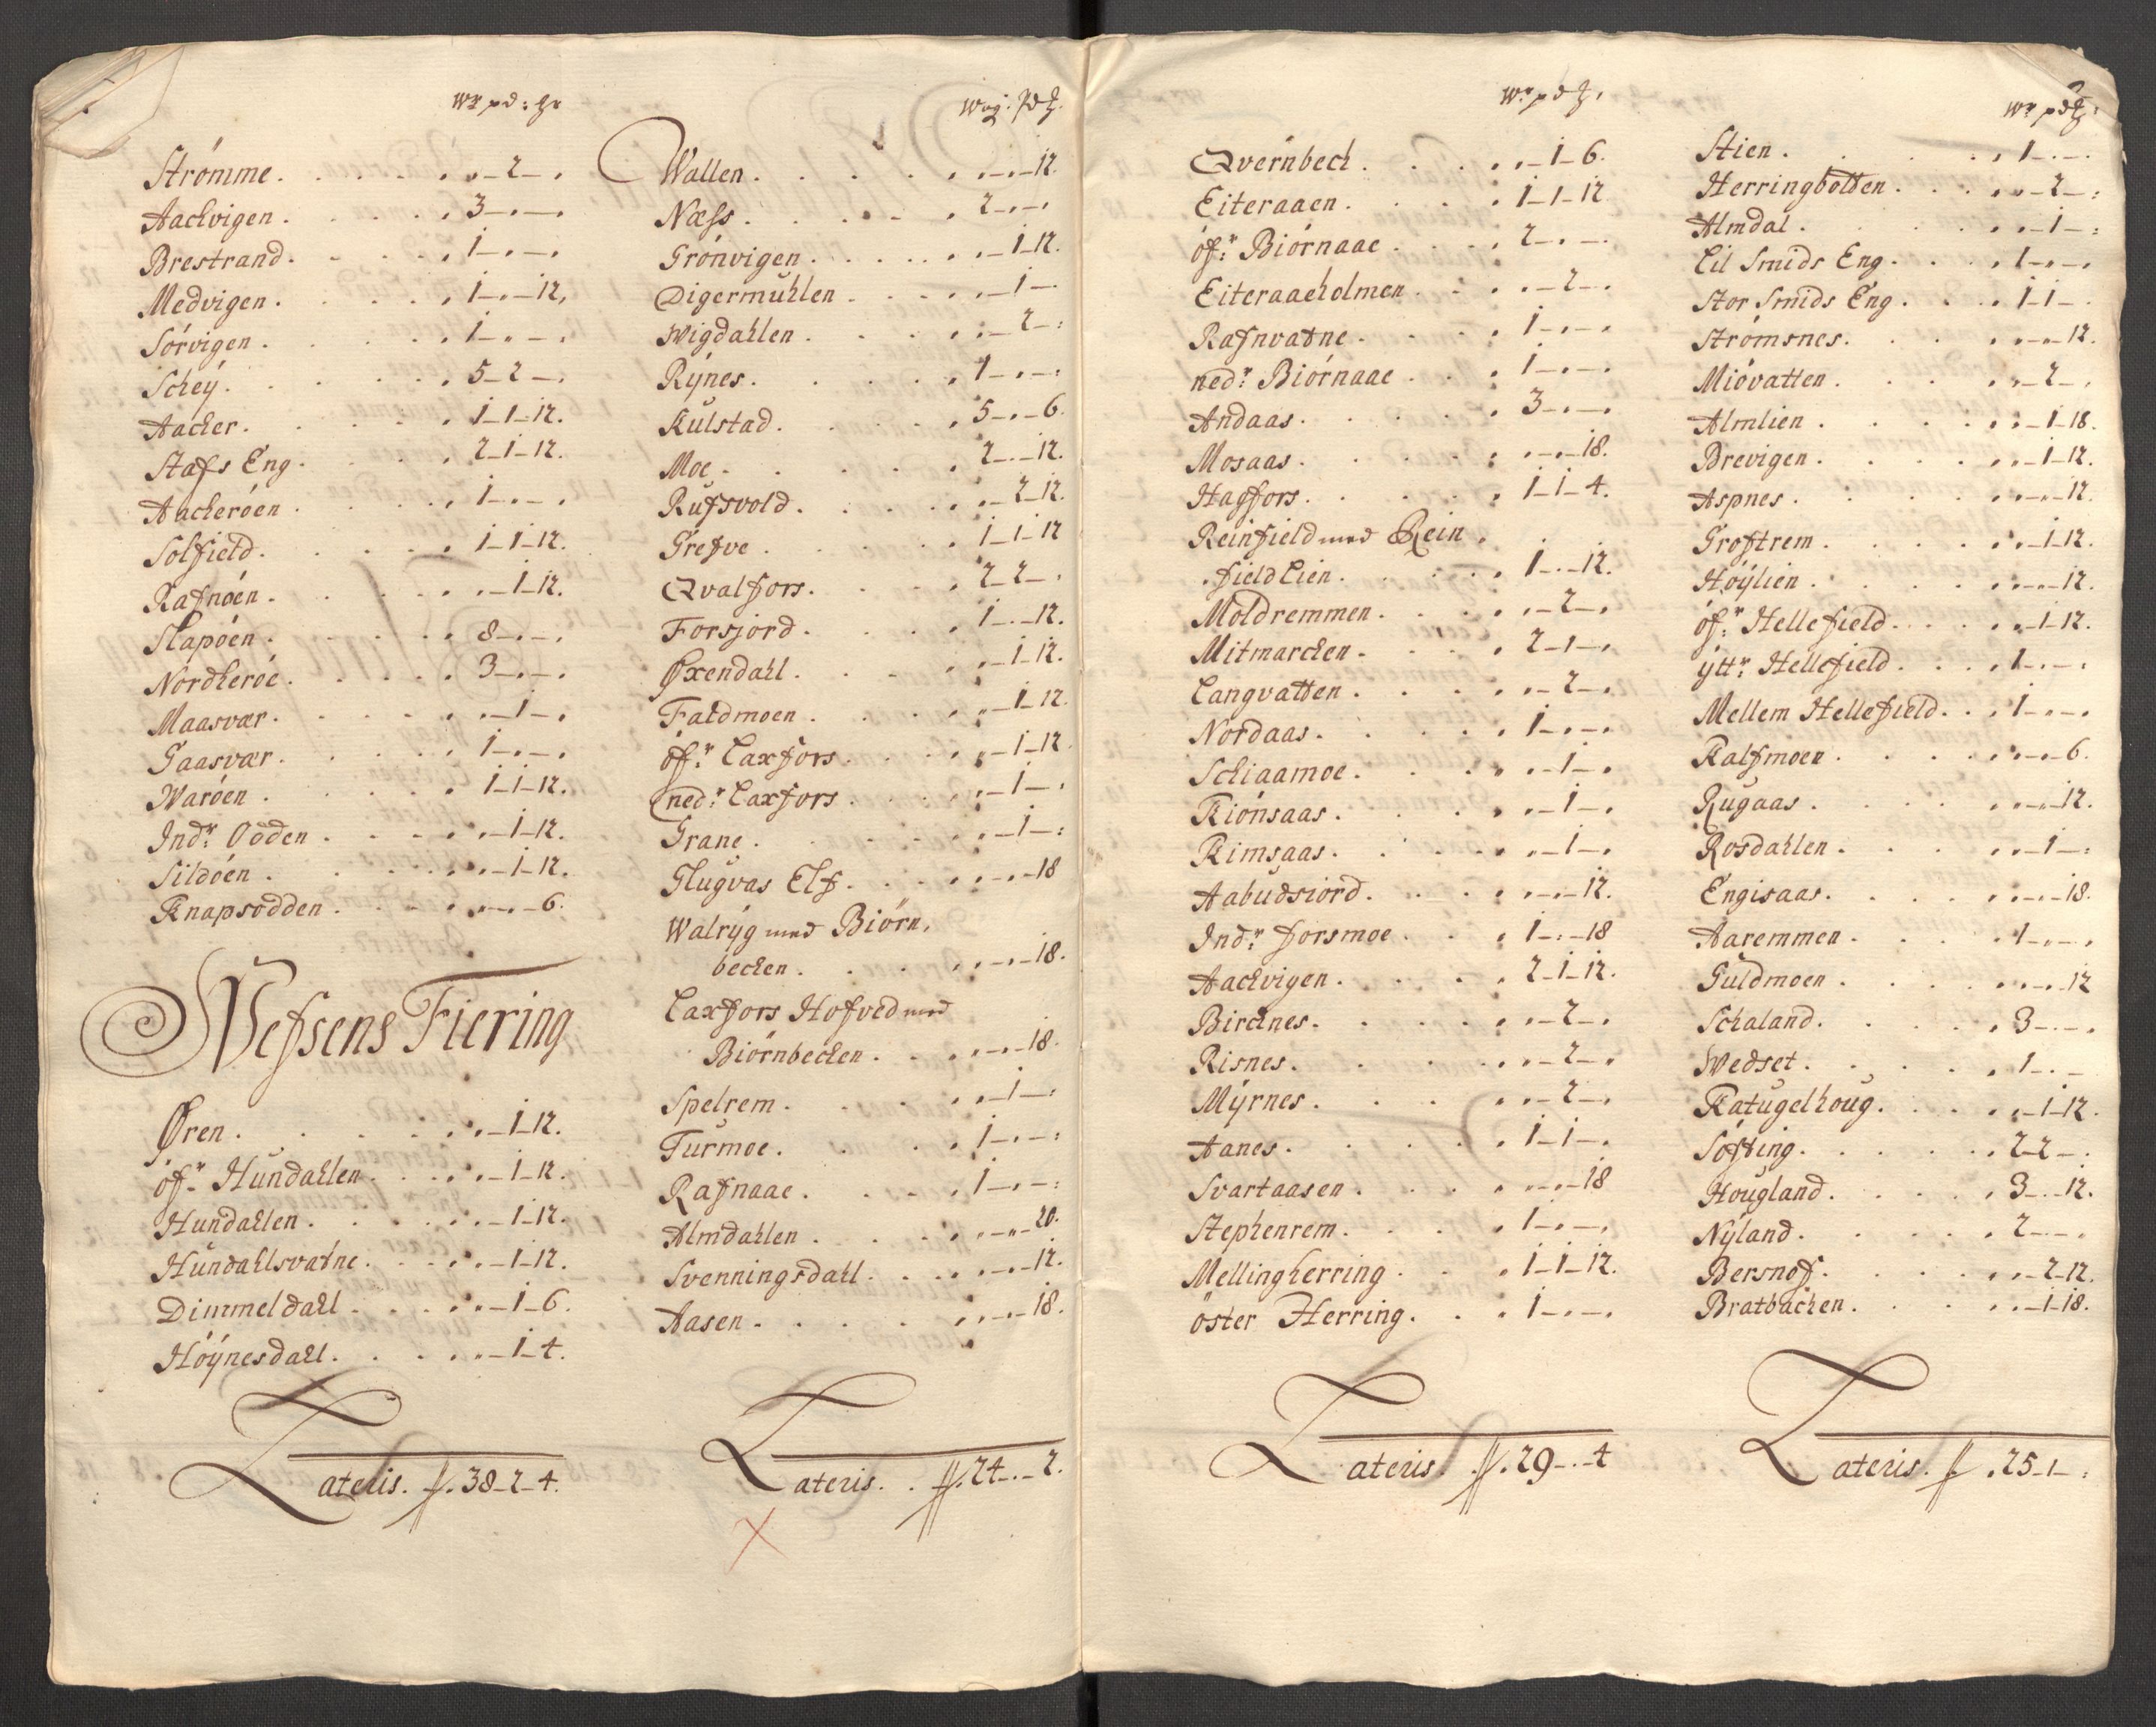 Wr pd: ℔r
Strömme . . . . . . - 2 - .
Aackvigen . . . . . 3 - . - .
Brestrand . . . . . 1 - . - .
Medvigen . . . . . 1 - . - 12.
Sörvigen . . . . . 1 - . - .
Scheÿ . . . . . 5 - 2 - .
Aacher . . . . . 1 - 1 - 12.
Stafs Eng . . . . . 2 - 1 - 12.
Aacheröen . . . . . 1 - . - .
Solfield . . . . . 1 - 1 - 12.
Rafnöen . . . . . . - 1 - 12.
Slapöen . . . . . 8 - . - .
Nordheröe . . . . . 3 - . - .
Maasvær . . . . . . - 1 - .
Gaasvær . . . . . 1 - . - .
Waröen . . . . . 1 - 1 - 12.
Indr: Odden . . . . . - 1 - 12.
Sildöen . . . . . . - 1 - 12.
Knapsodden . . . . . - . - 6.
Wefsens Fiering
Øren . . . . . . - 1 - 12.
öfr: Hundahlen . . . . - 1 - 12.
Hundahlen . . . . . - 1 - 12.
Hundahlsvatne . . . . - 1 - 12.
Dimmeldahl . . . . . - 1 - 6.
Höÿnesdahl . . . . . - 1 - 4.
Lateris . 38 - 2 - 4.
Wog: pd ℔.
Wallen . . . . . . - . - 12.
Næss . . . . . 2 - . - .
Grönvigen . . . . . . - 1 - 12.
Digermuhlen . . . . . - 1 -
Wigdahlen . . . . . - 2 - :
Rÿnes . . . . . 1 - . - :
Kulstad . . . . . 5 - . - 6.
Moe . . . . . 2 - . - 12.
Rufsvold . . . . . - 2 - 12.
Grefve . . . . . 1 - 1 - 12
Qvalfors . . . . . 2 - 2 - .
Forsjord . . . . . 1 - . - 12.
Øxendahl . . . . . - 1 - 12.
Faldmoen . . . . . - 1 - 12.
öfr: Laxfors . . . . - 1 - 12.
nedr: Laxfors . . . . - 1 - .
Grane . . . . . - 1 - :
Glugvas Elf . . . . - . - 18
Walrÿg med Biörn,
becken . . . . . - . - 18.
Laxfors Hofved med
Biörnbecken . . . . - . - 18.
Spelrem . . . . . - 1 - :
Turmoe . . . . . 1 - . - :
Rafnaae . . . . . 1 - . - :
Almdahlen . . . . . - . - 20.
Svenningsdahl . . . . - . - 12.
Aasen . . . . . - . - 18.
Lateris . . 24 - . - 2.
Wr pd ℔.
Qvernbech . . . . . - 1 - 6.
Eiteraaen . . . . . 1 - 1 - 12
öfr: Biörnaae . . . . 2 - . - .
Eiteraaeholmen . . . . - 2 - .
Rafnvatne . . . . 1 - . - .
nedr: Biörnaae . . . 1 - . - .
Andaas . . . . . 3 - . - .
Mosaas . . . . . - . - 18.
Hagfors . . . . . 1 - 1 - 4.
Reinfield med Rein
field Lien . . . . . 1 - . - 12.
Moldremmen . . . . - 2 - .
Mitmarchen . . . . 2 - 1 - .
Langvatten . . . . - 2 - .
Nordaas . . . . . 1 - . - .
Schiaamoe . . . . . - 1 - .
Kiönsaas . . . . . - 1 - .
Kimsaas . . . . . - 1 - .
Aabudsiord . . . . - . - 12.
Indr: forsmoe . . . 1 - . - 18
Aackvigen . . . . . 2 - 1 - 12.
Birchnes . . . . . - 2 - .
Risnes . . . . . - 2 - .
Mÿrnes . . . . . - 2 - .
Aanes . . . . . 1 - 1 - .
Svartaasen . . . . . - . - 18
Stephenrem . . . . 1 - . - .
Mellingherring . . . 1 - 1 - 12.
öster Herring . . . 1 - . - .
Lateris . . 29 - . - 4
Wr pd ℔.
Stien . . . . . 1 - . - .
Herringbotten . . . . - 2 - :
Almdal . . . . . - 1 - :
Lil Smids Eng . . . 1 - . - .
Stor Smids Eng . . . 1 - 1 - .
Strömsnes . . . . - . - 12.
Miövatten . . . . - 2 - .
Almlien . . . . . - 1 - 18.
Brevigen . . . . . - 1 - 12.
Aspnes . . . . . - . - 12.
Groftrem . . . . . - 1 - 12.
Höÿlien . . . . . - . - 12.
öfr: Hellefield . . . . - 1 - 12.
ÿttr: Hellefield . . . 1 - . - .
Mellem Hellefield . . . 1 - . - .
Kalfmoen . . . . . - . - 6.
Rugaas . . . . . - . - 12.
Rosdahlen . . . . . - 1 - :
Engisaas . . . . . - . - 18.
Aaremmen . . . . 1 - . - .
Guldmoen . . . . . - . - 12
Schaland . . . . . 3 - . - .
Wedset . . . . . 1 - . -
Katugelhoug . . . . - 1 - 12.
Söfting . . . . . 2 - 2 - .
Hougland . . . . . 3 - . - 12.
Nÿland . . . . . 2 - . - .
Bersnof . . . . . - 2 - 12.
Bratbachen . . . . - 1 - 18.
Lateris . . 25 - 1 - :